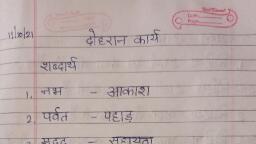 11/10/21
दोहरान कार्य
शब्दार्थ
1. नभ - आकाश
2. पर्वत - पहाड़
3 मदद - सहायता